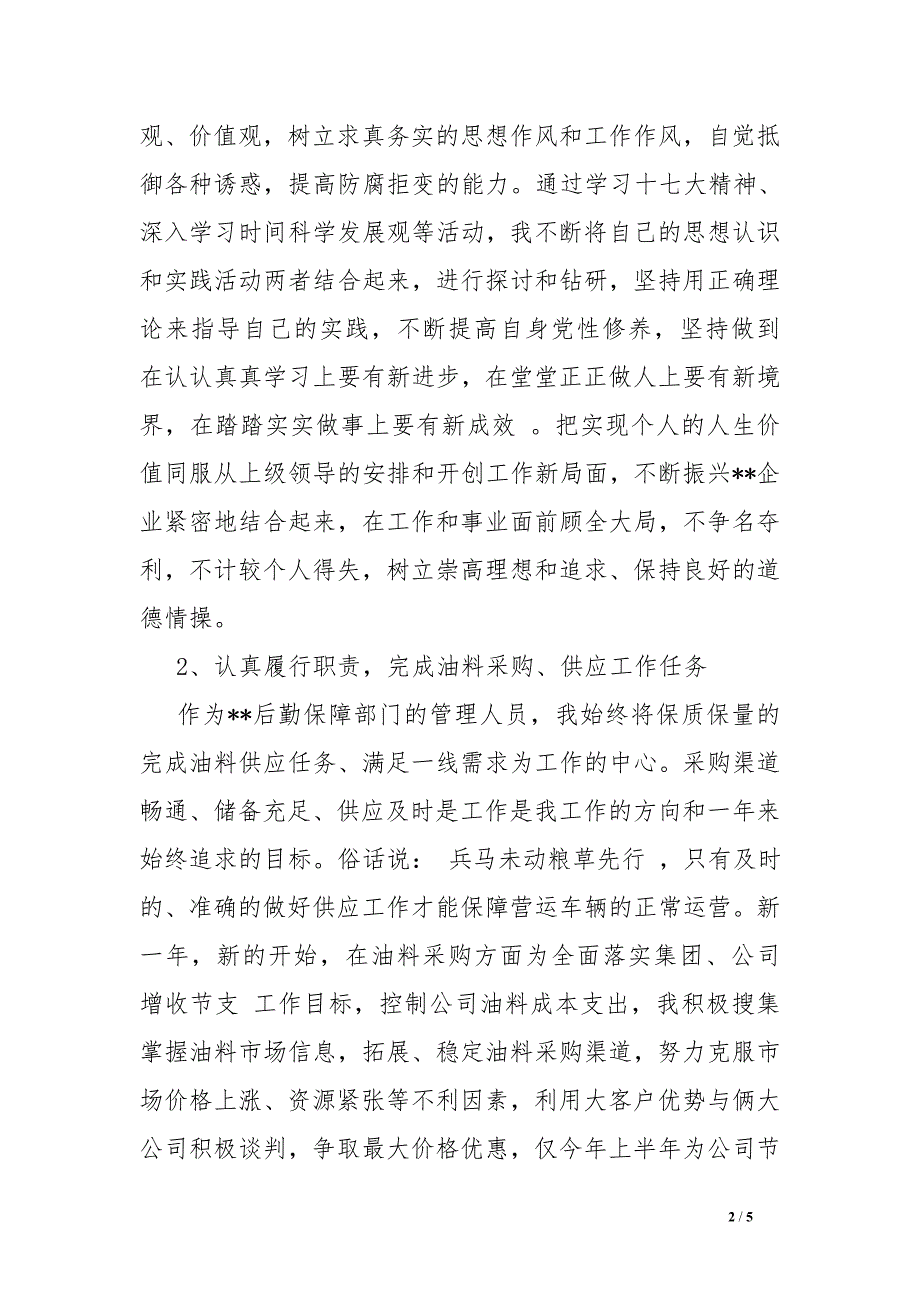 观、价值观，树立求真务实的思想作风和工作作风，自觉抵
御各种诱惑，提高防腐拒变的能力。通过学习十七大精神、
深入学习时间科学发展观等活动，我不断将自己的思想认识
和实践活动两者结合起来，进行探讨和钻研，坚持用正确理
论来指导自己的实践，不断提高自身党性修养，坚持做到
在认认真真学习上要有新进步，在堂堂正正做人上要有新境
界，在踏踏实实做事上要有新成效 。把实现个人的人生价
值同服从上级领导的安排和开创工作新局面，不断振兴**企
业紧密地结合起来，在工作和事业面前顾全大局，不争名夺
利，不计较个人得失，树立崇高理想和追求、保持良好的道
德情操。
2、认真履行职责，完成油料采购、供应工作任务
作为**后勤保障部门的管理人员，我始终将保质保量的
完成油料供应任务、满足一线需求为工作的中心。采购渠道
畅通、储备充足、供应及时是工作是我工作的方向和一年来
始终追求的目标。俗话说： 兵马未动粮草先行 ，只有及时
的、准确的做好供应工作才能保障营运车辆的正常运营。新
一年，新的开始，在油料采购方面为全面落实集团、公司
增收节支 工作目标，控制公司油料成本支出，我积极搜集
掌握油料市场信息，拓展、稳定油料采购渠道，努力克服市
场价格上涨、资源紧张等不利因素，利用大客户优势与俩大
公司积极谈判，争取最大价格优惠，仅今年上半年为公司节
2 / 5